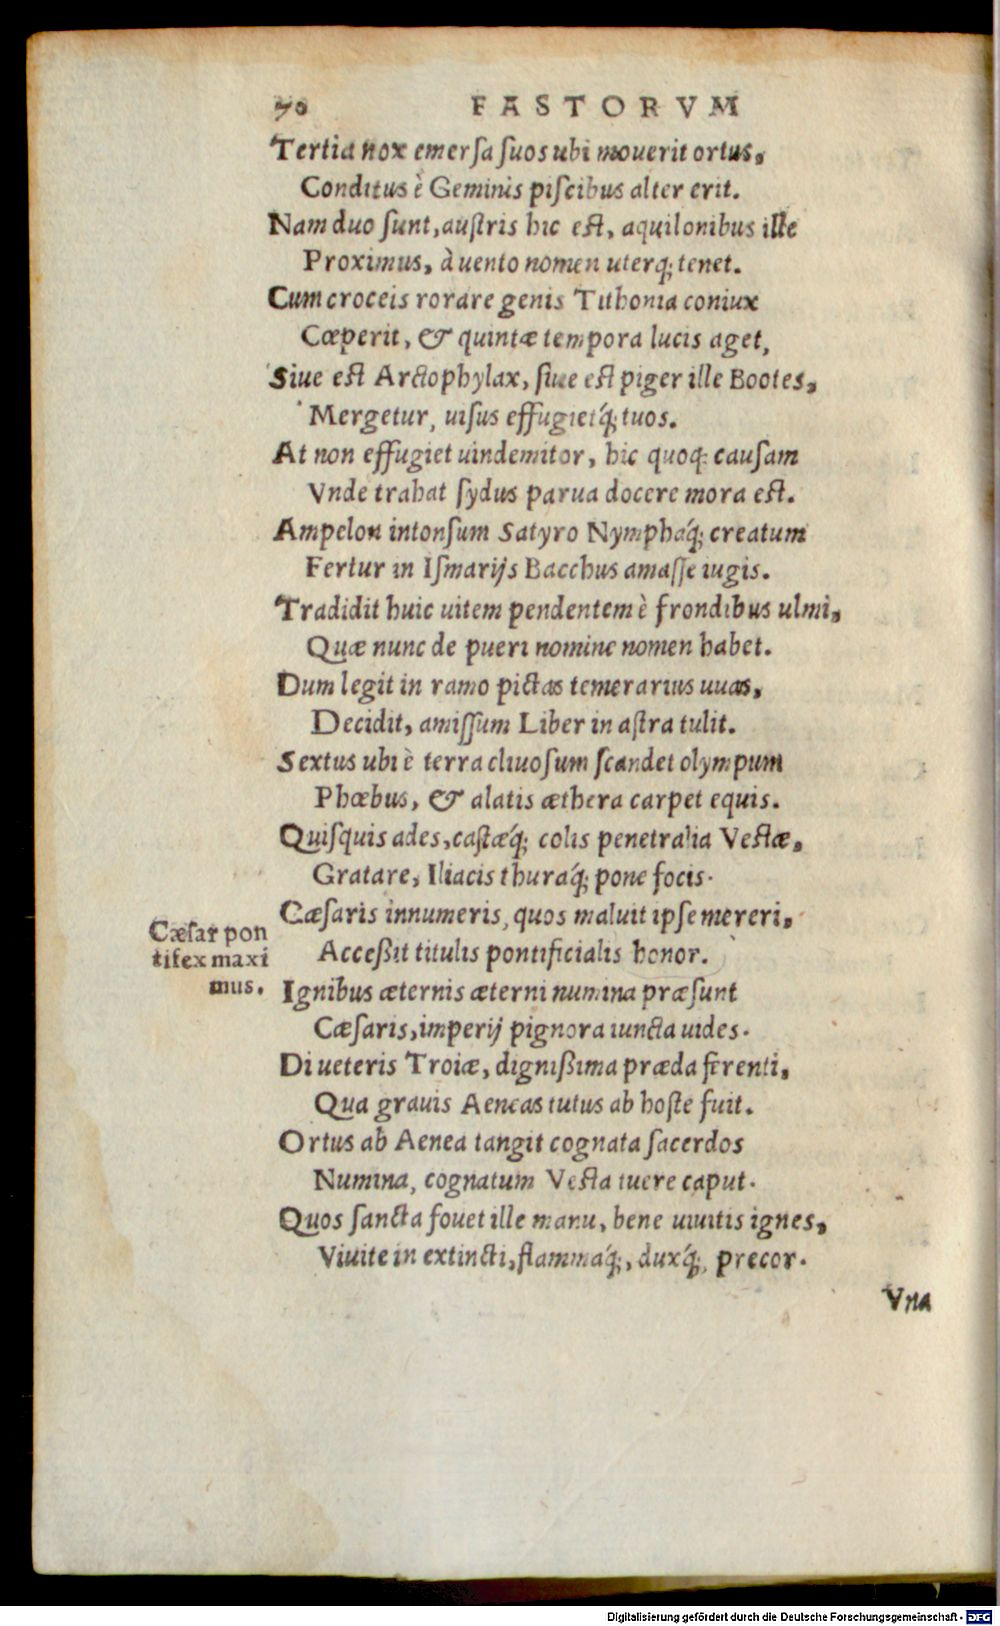 70 FASTORVM
Tertia nox emersa suos ubi mouerit ortus,
Conditus è Geminis piscibus alter erit.
Nam duo sunt, austris hic est, aquilonibus ille
Proximus, à uento nomen uterq; tenet.
Cum croceis rorare genis Tithonia coniux
Cœperit, & quintæ tempora lucis aget,
Siue est Arctophylax, siue est piger ille Bootes,
Mergetur, uisus effugietq́; tuos.
At non effugiet uindemitor, hic quoq; causam
Vnde trahat sydus parua docere mora est.
Ampelon intonsum Satyro Nymphaq́; creatum
Fertur in Ismarijs Bacchus amasse iugis.
Tradidit huic uitem pendentem è frondibus ulmi,
Quæ nunc de pueri nomine nomen habet.
Dum legit in ramo pictas temerarius uuas,
Decidit, amissum Liber in astra tulit.
Sextus ubi è terra cliuosum scandet olympum
Phœbus, & alatis æthera carpet equis.
Quisquis ades, castæq́; colis penetralia Vestæ,
Gratare, Iliacis thuraq́; pone focis.
Cæsaris innumeris, quos maluit ipse mereri,
Acceßit titulis pontificialis honor.
Cæsar pon
tifex maxi
mus.
Ignibus æternis æterni numina præsunt
Cæsaris, imperij pignora iuncta uides.
Di ueteris Troiæ, dignißima præda ferenti,
Qua grauis Aeneas tutus ab hoste fuit.
Ortus ab Aenea tangit cognata sacerdos
Numina, cognatum Vesta tuere caput.
Quos sancta fouet ille manu, bene uiuitis ignes,
Viuite in extincti, flammaq́;, duxq́;, precor.
Vna
Digitalisierung gefördert durch die Deutsche Forschungsgemeinschaft - DFG